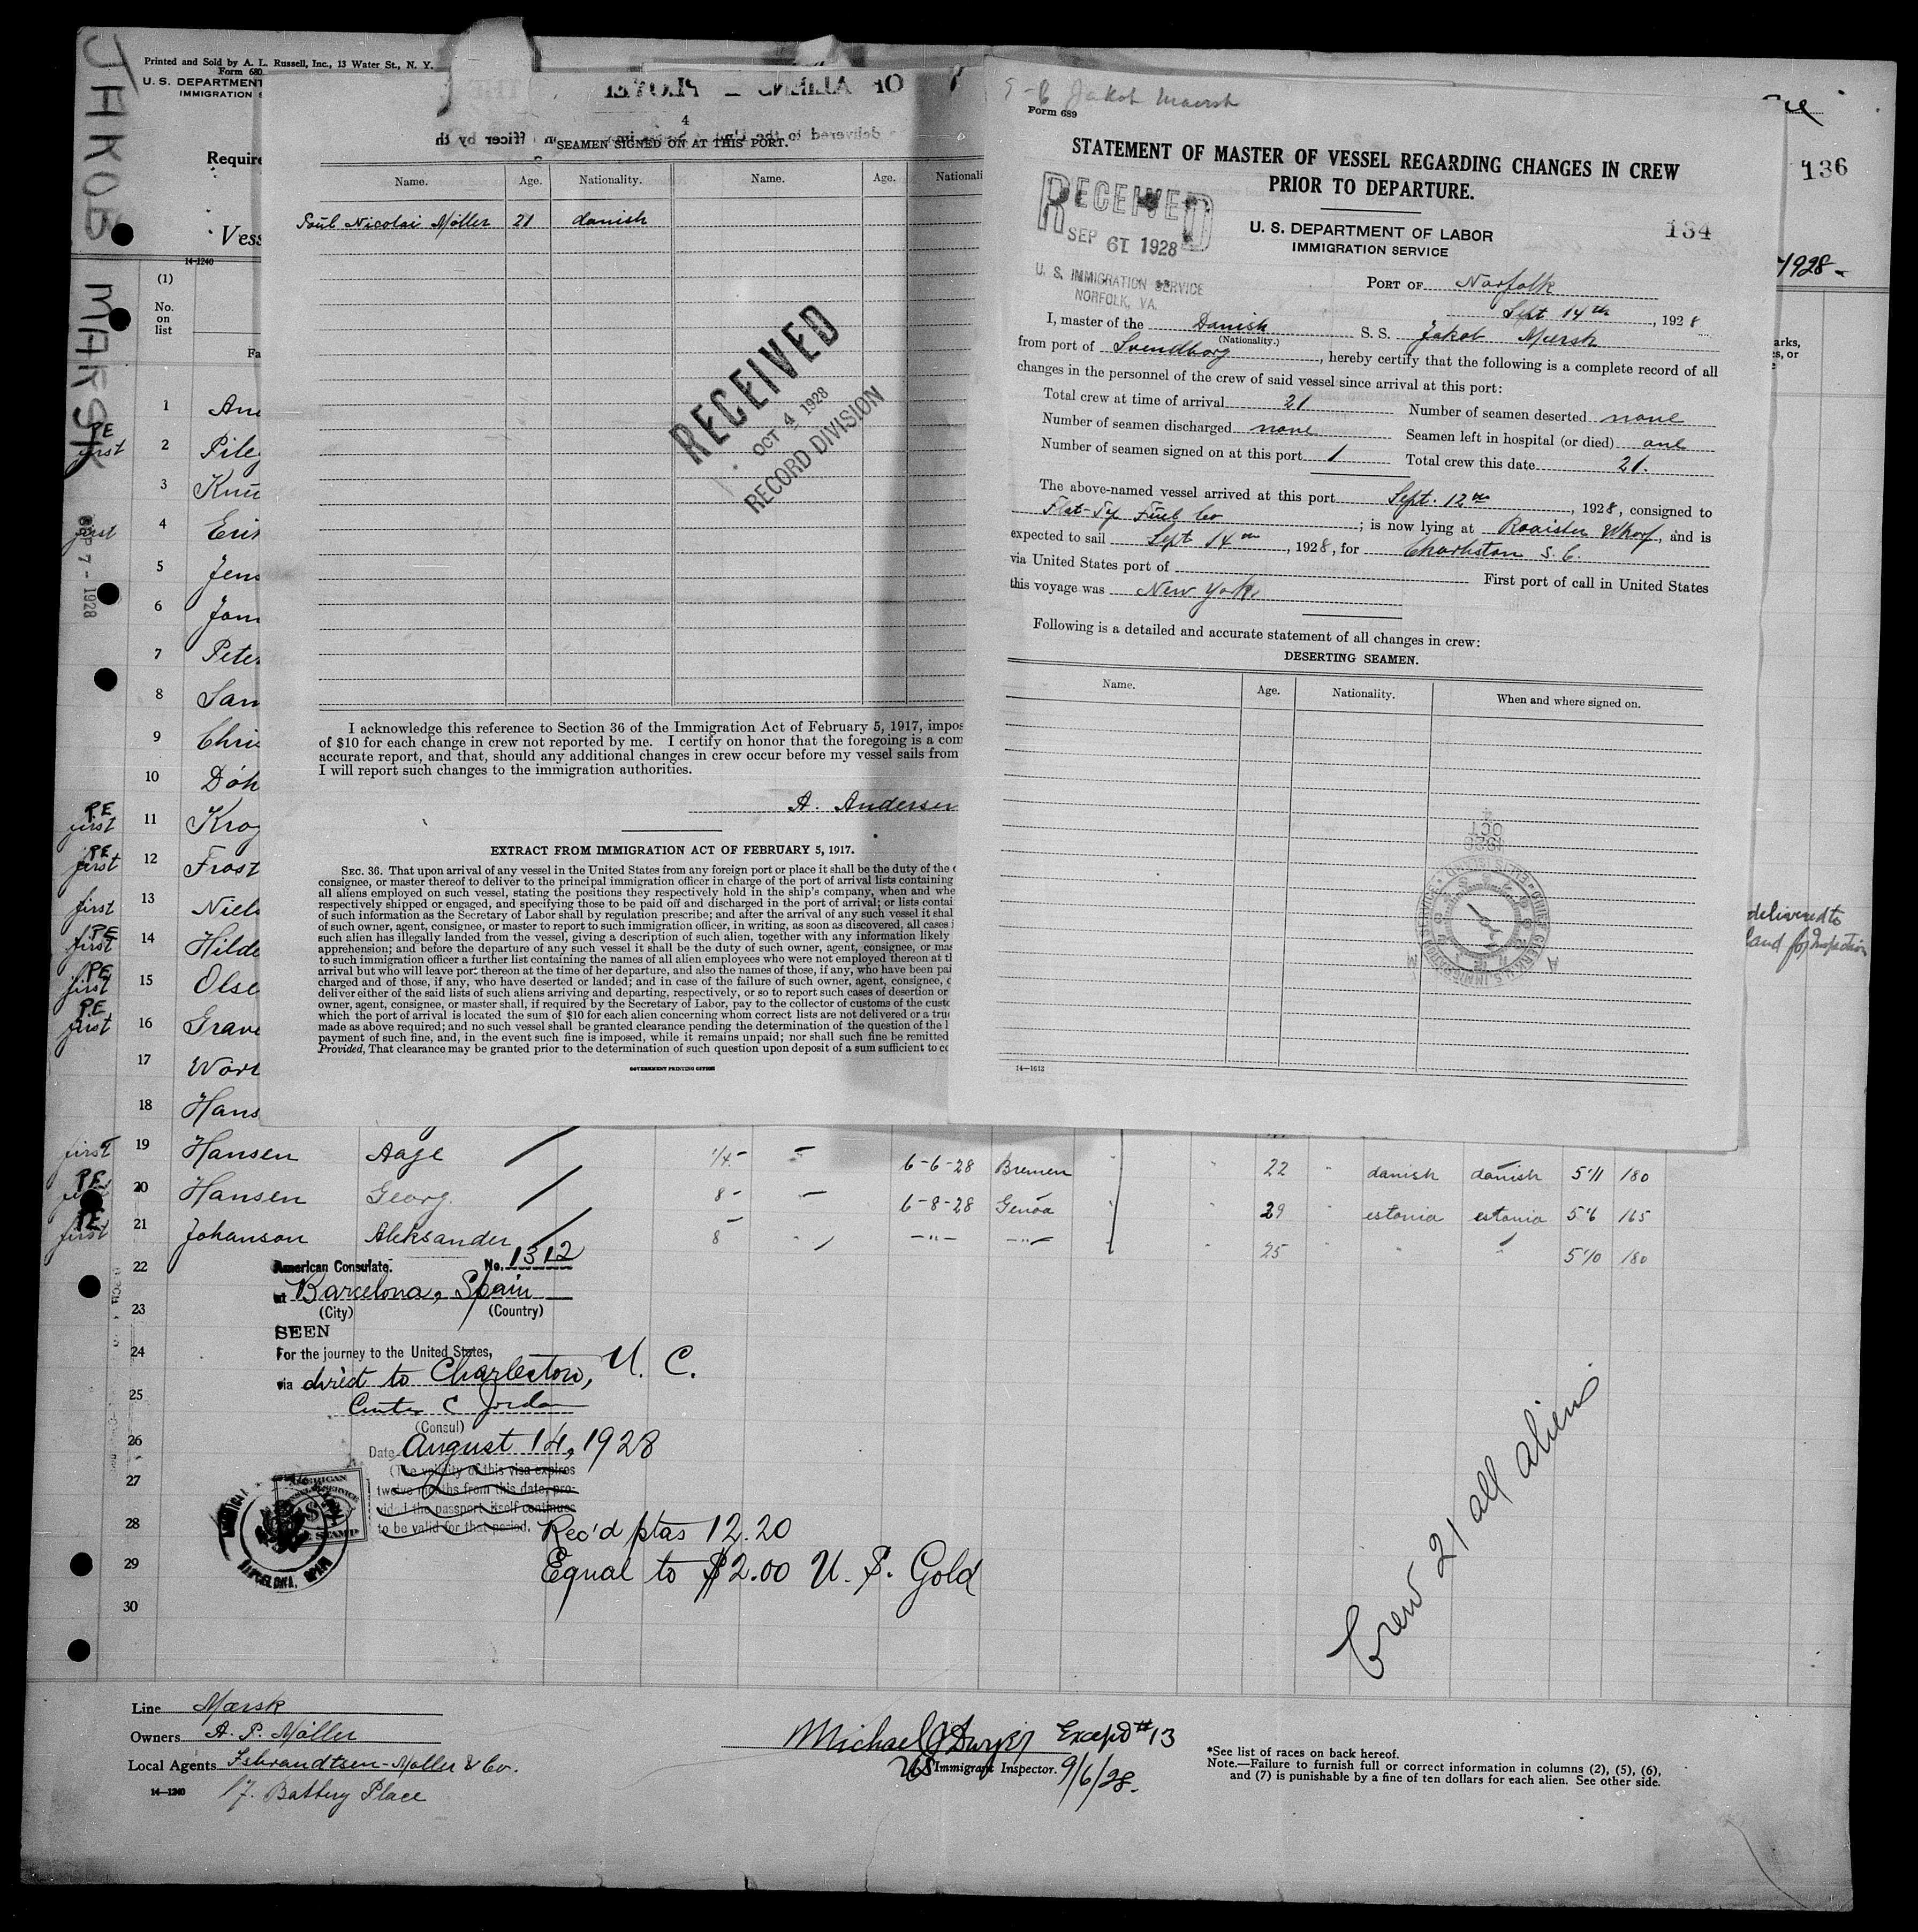 JAKOB MARSK
SEP 7 - 1928
Printed and Sold by A. L. Russell, Inc., 13 Water St., N. Y.
Form 680
U. S. DEPARTMENT
IMMIGRATION S
Require
Vess
14-1240
136
1928
(1)
No.
on
list
Fa
arks,
s, or
e
1 And
PE first 2 Pile
3 Knu
first 4 Eri
5 Jens
6 Jan
7 Peter
8 San
9 Chri
10 Doh
PE first 11 Krog
PE first 12 Frost
first 13 Niel
PE first 14 Hilde
PE first 15 Olse
PE first 16 Grav
17 War
18 Hans
delivered to
land for Inspection
4
SEAMEN SIGNED ON AT THIS PORT.
Name. Age. Nationality. Name. Age. Nationali
Poul Nicolai Möller 21 danish
RECEIVED
OCT 4 1928
RECORD DIVISION
I acknowledge this reference to Section 36 of the Immigration Act of February 5, 1917, impos
of $10 for each change in crew not reported by me. I certify on honor that the foregoing is a com
accurate report, and that, should any additional changes in crew occur before my vessel sails from
I will report such changes to the immigration authorities.
A. Andersen
EXTRACT FROM IMMIGRATION ACT OF FEBRUARY 5, 1917.
SEC. 36. That upon arrival of any vessel in the United States from any foreign port or place it shall be the duty of the
consignee, or master thereof to deliver to the principal immigration officer in charge of the port of arrival lists containing
all aliens employed on such vessel, stating the positions they respectively hold in the ship's company, when and whe
respectively shipped or engaged, and specifying those to be paid off and discharged in the port of arrival; or lists contai
of such information as the Secretary of Labor shall by regulation prescribe; and after the arrival of any such vessel it shal
of such owner, agent, consignee, or master to report to such immigration officer, in writing, as soon as discovered, all cases i
such alien has illegally landed from the vessel, giving a description of such alien, together with any information likely
apprehension; and before the departure of any such vessel it shall be the duty of such owner, agent, consignee, or mas
to such immigration officer a further list containing the names of all alien employees who were not employed thereon at th
arrival but who will leave port thereon at the time of her departure, and also the names of those, if any, who have been pai
charged and of those, if any, who have deserted or landed; and in case of the failure of such owner, agent, consignee, o
deliver either of the said lists of such aliens arriving and departing, respectively, or so to report such cases of desertion or
owner, agent, consignee, or master shall, if required by the Secretary of Labor, pay to the collector of customs of the custo
which the port of arrival is located the sum of $10 for each alien concerning whom correct lists are not delivered or a true
made as above required; and no such vessel shall be granted clearance pending the determination of the question of the l
payment of such fine, and, in the event such fine is imposed, while it remains unpaid; nor shall such fine be remitted
Provided, That clearance may be granted prior to the determination of such question upon deposit of a sum sufficient to co
GOVERNMENT PRINTING OFFICE
Jakob Maersk
Form 689
STATEMENT OF MASTER OF VESSEL REGARDING CHANGES IN CREW
PRIOR TO DEPARTURE.
RECEIVED
SEP 1928
U. S. IMMIGRATION SERVICE
NORFOLK, VA.
U. S. DEPARTMENT OF LABOR
IMMIGRATION SERVICE
134
PORT OF Norfolk
Sept 14th, 1928
I, master of the Danish S. S. Jakob Mærsk
(Nationality.)
from port of Svendborg, hereby certify that the following is a complete record of all
changes in the personnel of the crew of said vessel since arrival at this port:
Total crew at time of arrival 21 Number of seamen deserted none
Number of seamen discharged none Seamen left in hospital (or died) one
Number of seamen signed on at this port 1 Total crew this date 21.
The above-named vessel arrived at this port Sept. 12th, 1928, consigned to
Flat-Top Fuel Co; is now lying at Wharf, and is
expected to sail Sept 14th, 1928, for Charleston S. C.
via United States port of First port of call in United States
this voyage was New York
Following is a detailed and accurate statement of all changes in crew:
DESERTING SEAMEN.
Name. Age. Nationality. When and where signed on.
14-1612
first 19 Hansen Aage 1/4 - 6-6-28 Bremen 22 danish danish 5'11 180
PE 20 Hansen Georg. 8 - 6-8-28 Genoa 29 estonia estonia 5'6 165
PE first 21 Johanson Aleksander 8 -"- -"- 25 " " 5'10 180
22
23
24
25
26
27
28
29
30
American Consulate. No. 1312
at Barcelona, Spain
(City) (Country)
SEEN
For the journey to the United States,
via direct to Charleston, N. C.
Curtis C Jordan
(Consul)
Date August 14, 1928
(The validity of this visa expires
twelve months from this date, pro-
vided the passport itself continues
to be valid for that period.
AMERICAN
BARCELONA, SPAIN
Rec'd ptas 12.20
Equal to $2.00 U. S. Gold
Crew 21 all aliens
Line Mærsk
Owners A. P. Möller
Local Agents Isbrandtsen-Moller & Co.
14-1240 17. Battery Place
Michael J Dwyer Except #13
US Immigrant Inspector. 9/6/28.
*See list of races on back hereof.
Note.—Failure to furnish full or correct information in columns (2), (5), (6),
and (7) is punishable by a fine of ten dollars for each alien. See other side.